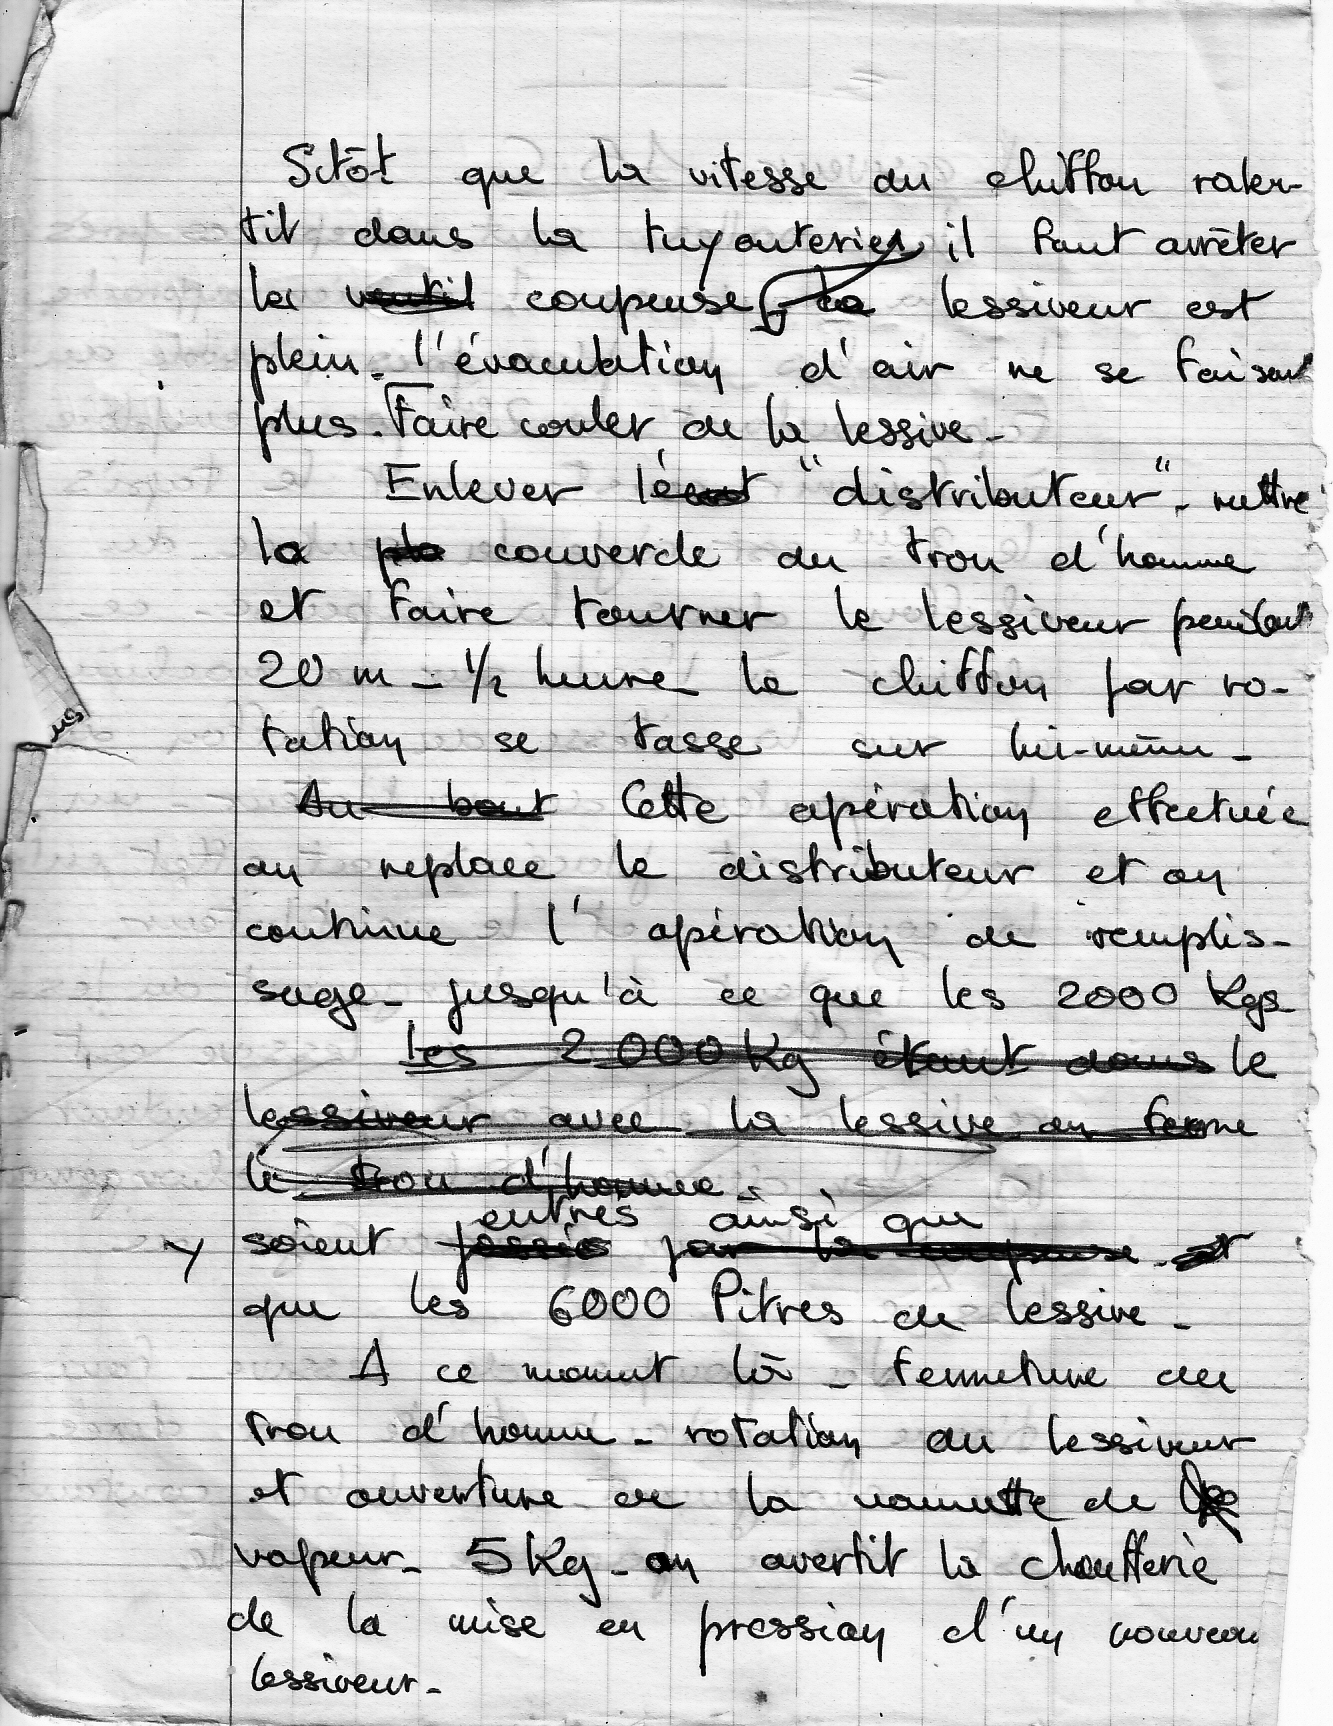 Sitôt que la vitesse du chiffon ralen-
tit dans la tuyauterie, il faut arrêter
la ventil coupeuse, le lessiveur est
plein. l'évacuation d'air ne se faisant
plus. Faire couler de la lessive.
Enlever le "distributeur". mettre
la couvercle du trou d'homme
et faire tourner le lessiveur pendant
20 m - 1/2 heure le chiffon par ro-
tation se tasse sur lui-même -
Au bout Cette opération effectuée
on replace le distributeur et on
continue l'opération de remplis-
sage - jusqu'à ce que les 2000 Kgs
les 2000 Kg étant dans le
lessiveur avec la lessive on ferme
le trou d'homme -
entrés ainsi que
soient passés par la coupeuse et
que les 6000 litres de lessive -
A ce moment là - fermeture du
trou d'homme - rotation du lessiveur
et ouverture de la vannette de
vapeur - 5 Kg - on avertit la chaufferie
de la mise en pression d'un nouveau
lessiveur -